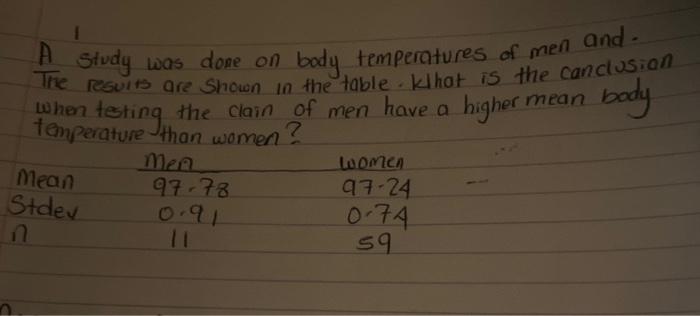 1
A study was done on body temperatures of men and.
The results are shown in the table. What is the conclusion
when testing the clain of men have a higher mean body
temperature than women?
Men women
Mean 97.78 97.24
Stdev 0.91 0.74
n 11 59